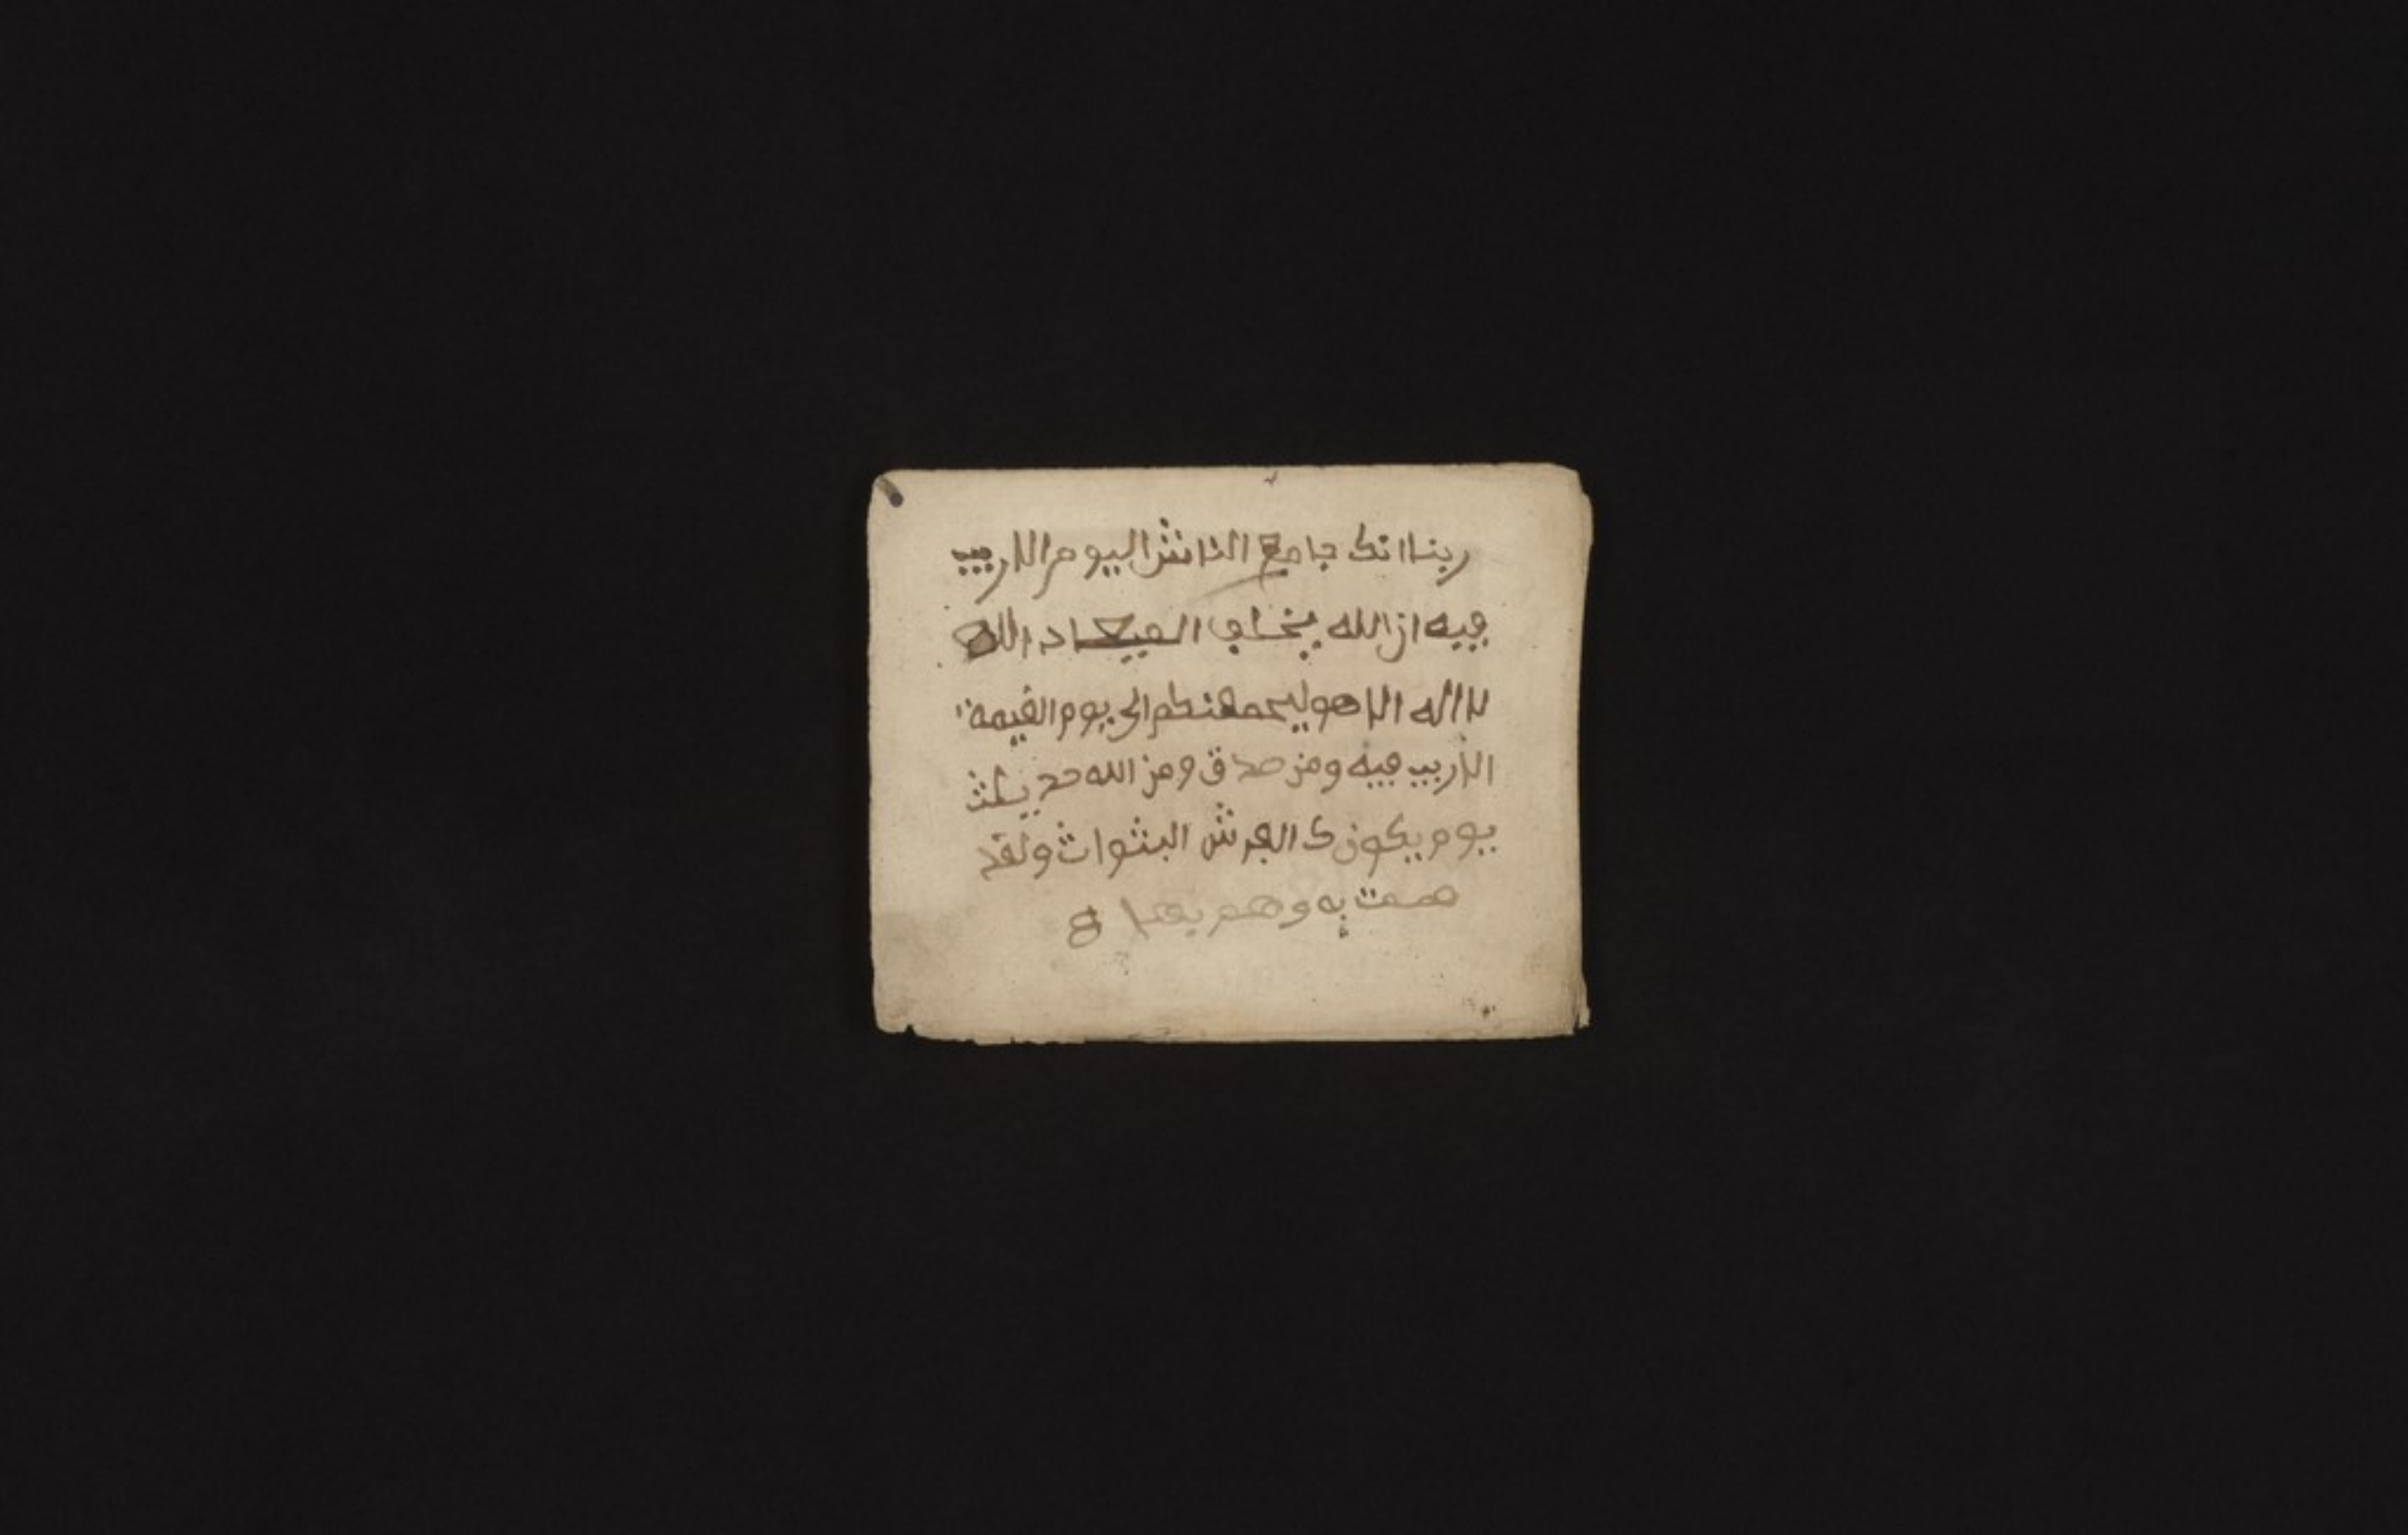 ربنا انك جامع الناش اليوم الا ريب
فيه ان الله يخلف الميعاد الله
لا اله الا هو ليجمعنكم الى يوم القيمة
الا ريب فيه ومن صدق ومن الله حديثث
يوم يكون ك العرش البثواث ولقد
همت به وهم بها